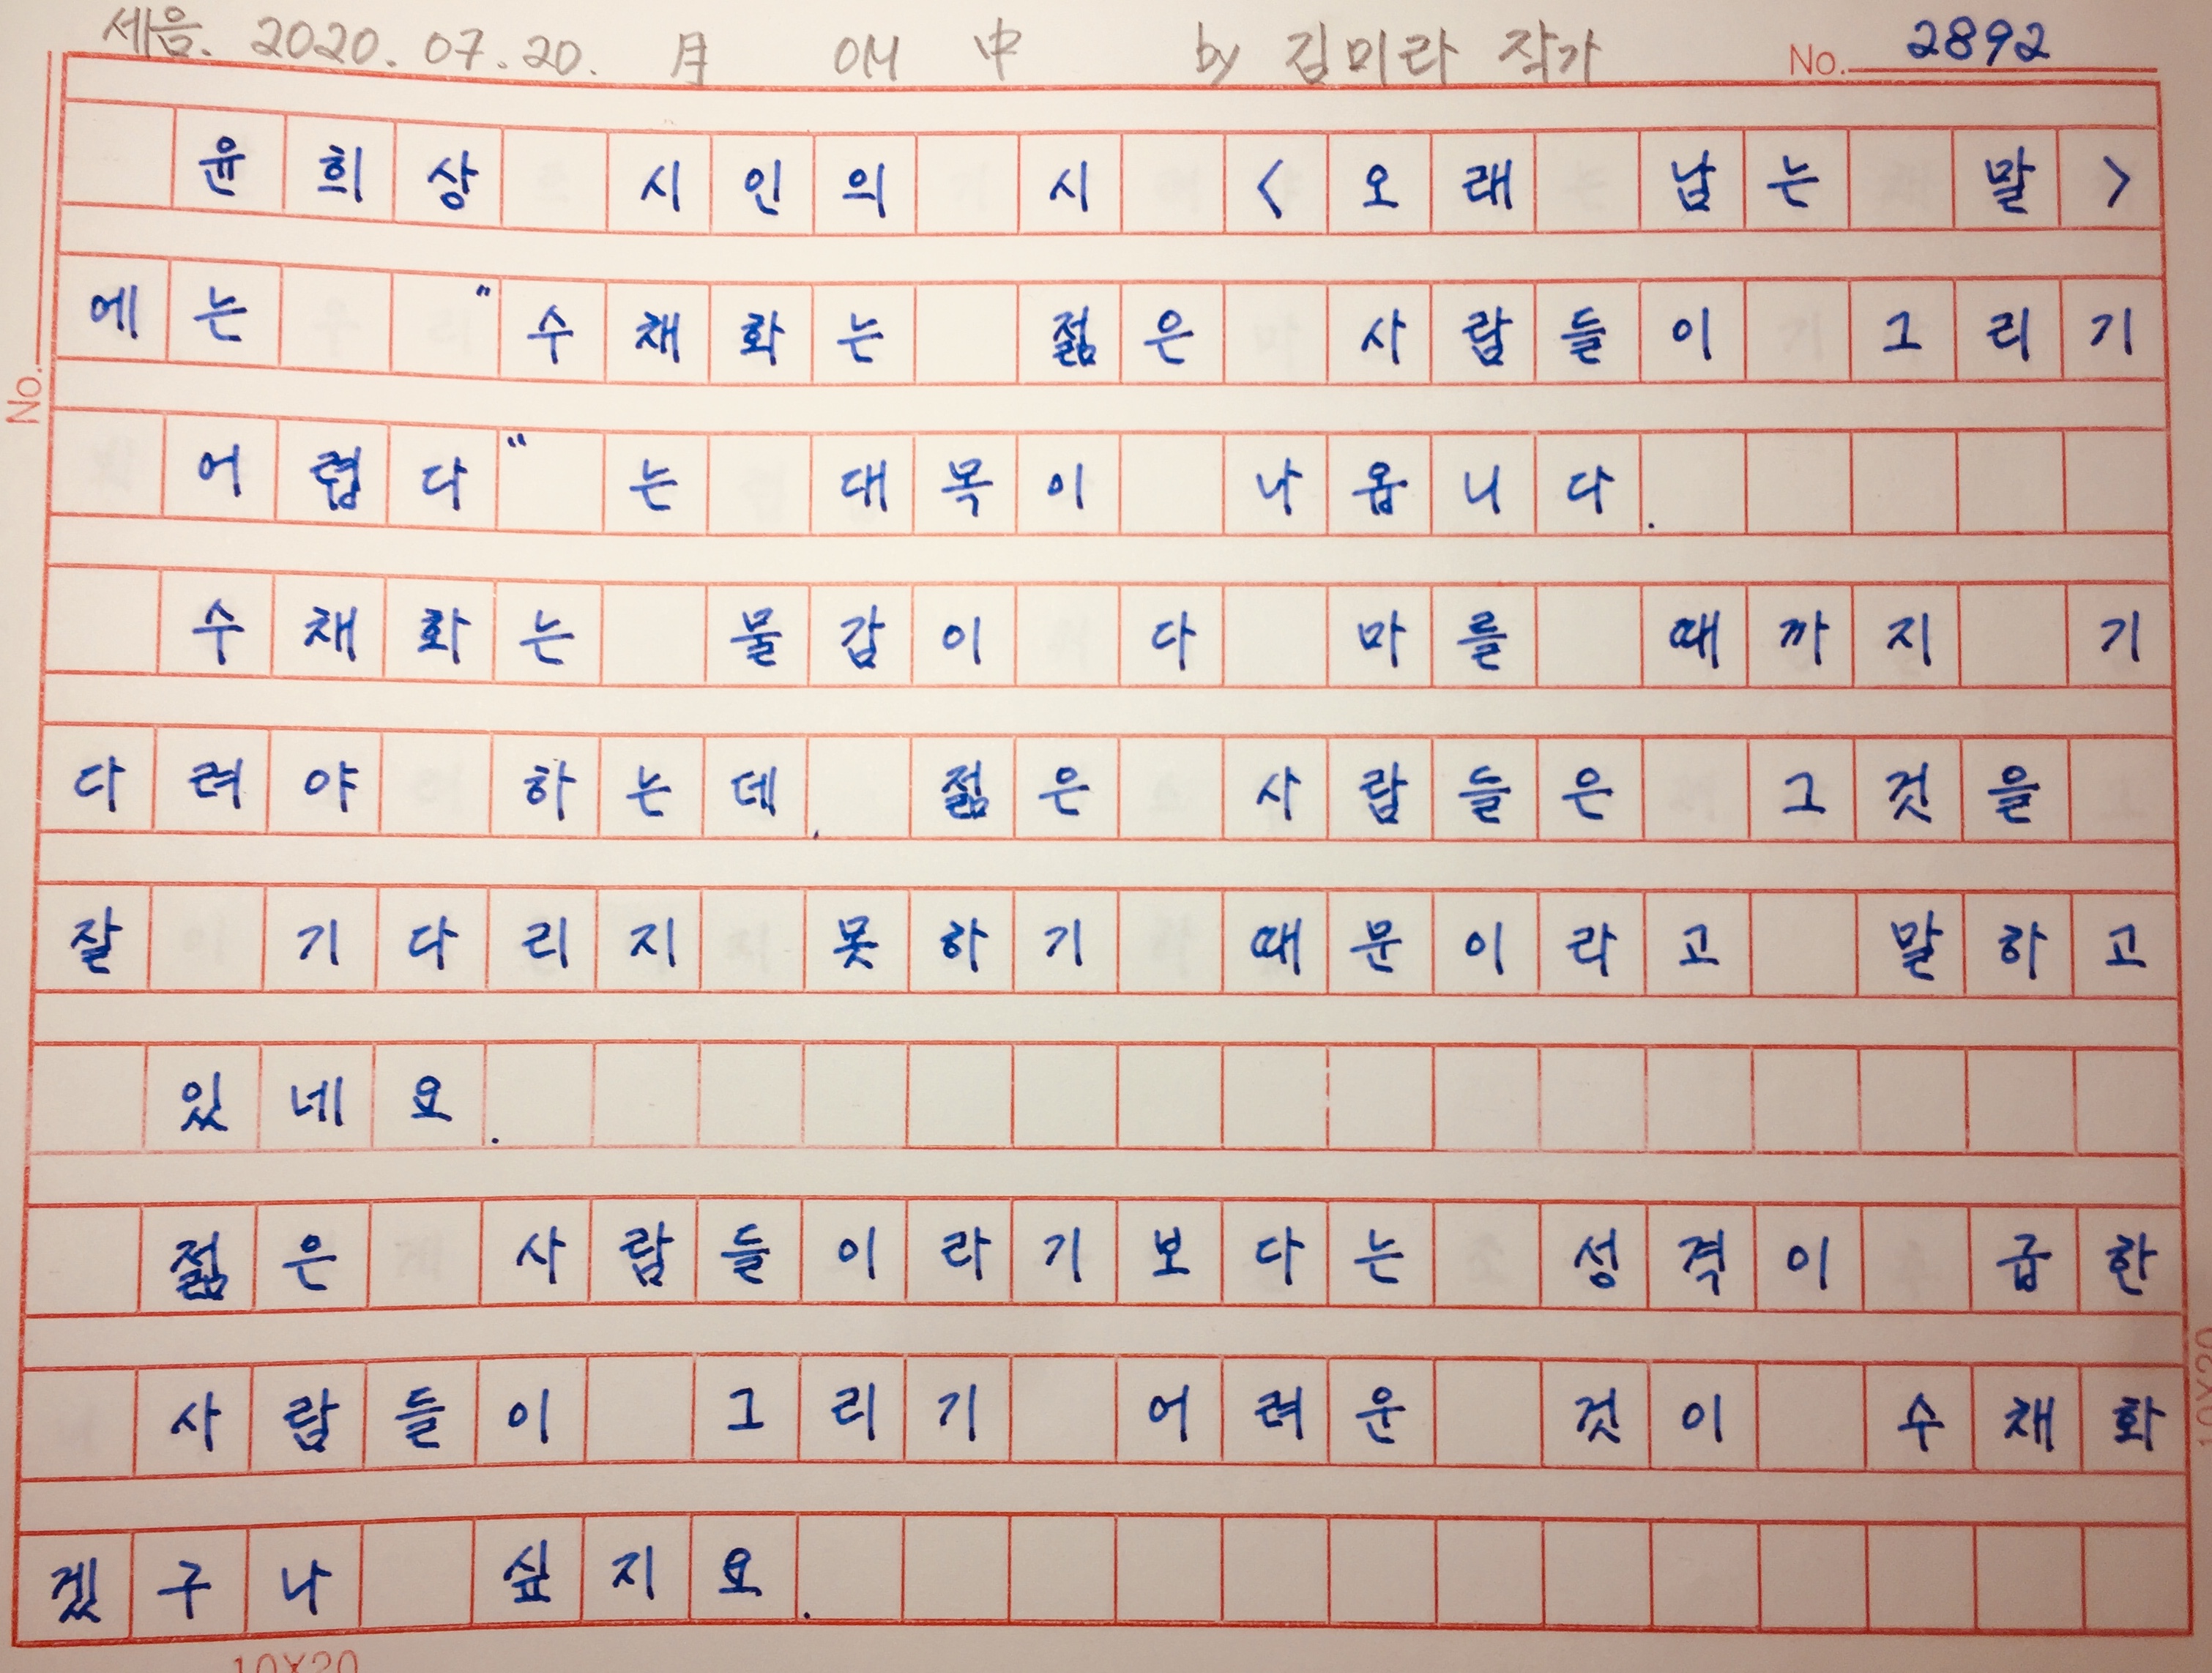 세음. 2020. 07. 20. 月 OM 中 by 김미라 작가
No. 2892
윤희상 시인의 시 <오래 남는 말>
에는 "수채화는 젊은 사람들이 그리기
어렵다"는 대목이 나옵니다.
수채화는 물감이 다 마를 때까지 기
다려야 하는데, 젊은 사람들은 그것을
잘 기다리지 못하기 때문이라고 말하고
있네요.
젊은 사람들이라기보다는 성격이 급한
사람들이 그리기 어려운 것이 수채화
겠구나 싶지요.
No.
10X20
10X20